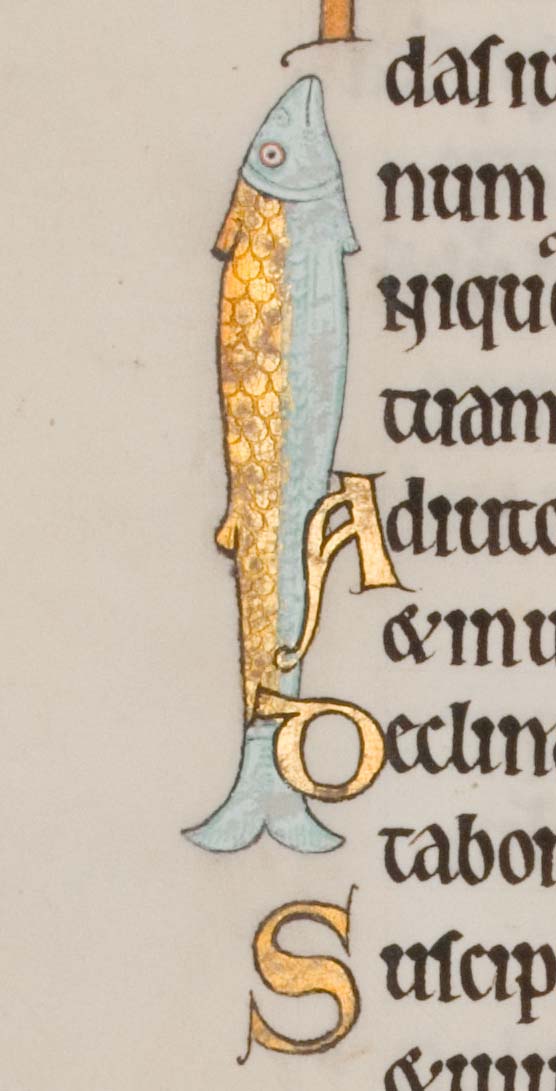 daſ iu
num
Niqu
tuam
Adiuto
& in u
Declin
tabor
Suſcip
& uiu